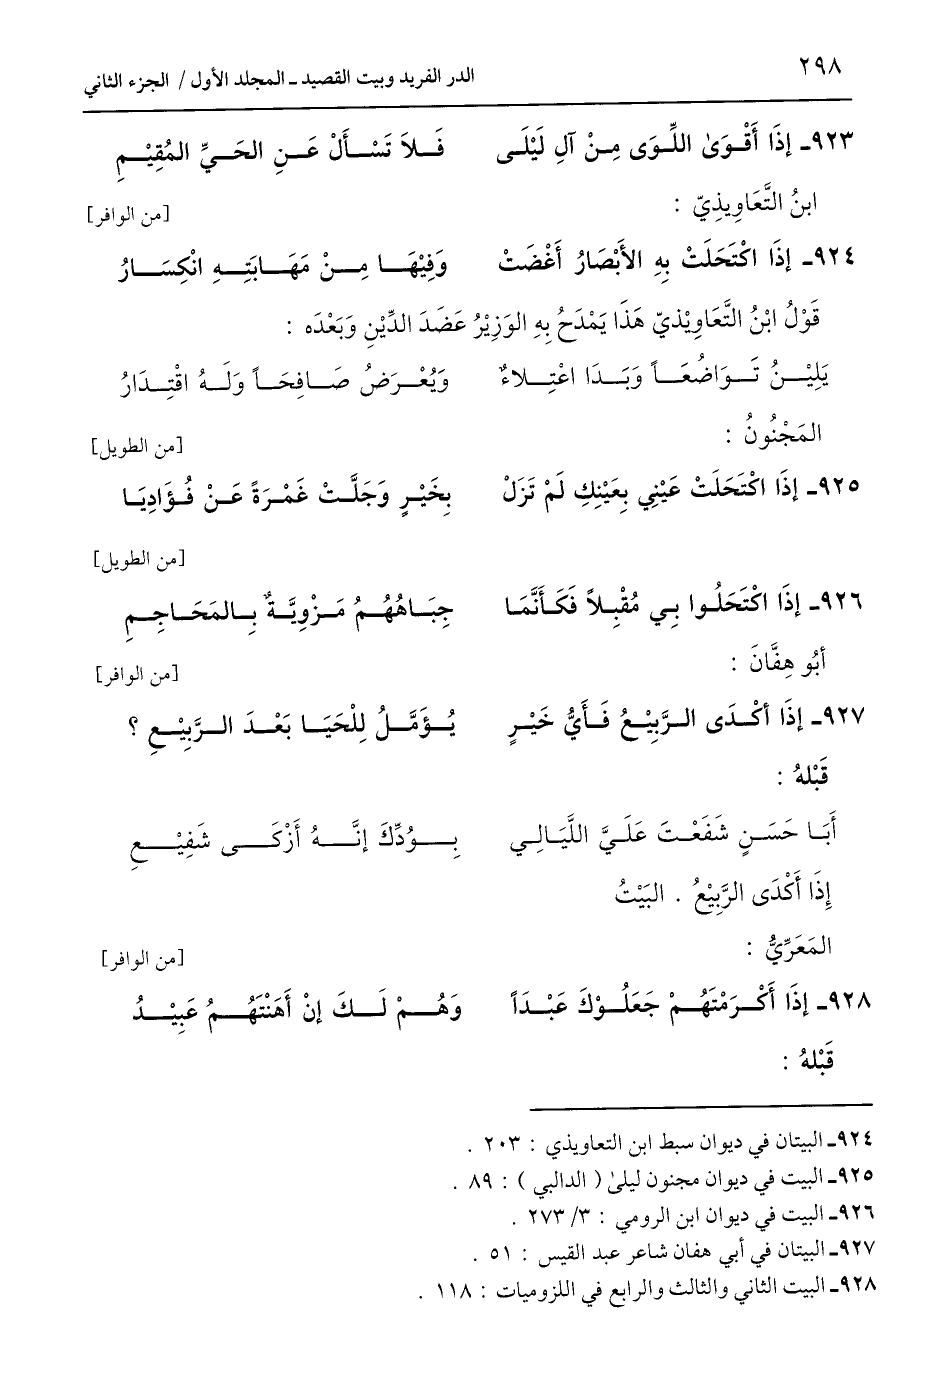 ٢٩٨ الدر الفريد وبيت القصيد ـ المجلد الأول / الجزء الثاني
٩٢٣ـ إذَا أَقْوَىٰ اللِّوَى مِنْ آلِ لَيْلَى فَلاَ تَسْأَلْ عَنِ الحَيِّ المُقِيْمِ
ابنُ التَّعَاوِيذِيّ : [من الوافر]
٩٢٤ـ إذَا اكْتَحَلَتْ بِهِ الأَبْصَارُ أَغْضَتْ وَفِيْهَا مِنْ مَهَابَتِهِ انْكِسَارُ
قَوْلُ ابْنُ التَّعَاوِيْذيّ هَذَا يَمْدَحُ بِهِ الوَزِيْرُ عَضَدَ الدِّيْنِ وَبَعْدَه :
يَلِيْنُ تَوَاضُعَاً وَبَدَا اعْتِلاءٌ وَيُعْرَضُ صَافِحَاً وَلَهُ اقْتِدَارُ
المَجْنُونُ : [من الطويل]
٩٢٥ـ إذَا اكْتَحَلَتْ عَيْنِي بِعَيْنِكِ لَمْ تَزَلْ بِخَيْرٍ وَجَلَّتْ غَمْرَةً عَنْ فُؤَادِيَا
[من الطويل]
٩٢٦ـ إذَا اكْتَحَلُوا بِي مُقْبِلاً فَكَأَنَّمَا جِبَاهُهُمُ مَزْوِيَّةٌ بِالمَحَاجِمِ
أبُو هِفَّانَ : [من الوافر]
٩٢٧ـ إذَا أكْدَى الرَّبِيْعُ فَأَيُّ خَيْرٍ يُؤَمَّلُ لِلْحَيَا بَعْدَ الرَّبِيْعِ ؟
قَبْلهُ :
أَبَا حَسَنٍ شَفَعْتَ عَلَيَّ اللَّيَالِي بِوُدِّكَ إنَّهُ أَزْكَى شَفِيْعِ
إذَا أَكْدَى الرَّبِيْعُ . البَيْتُ
المَعَرِّيُّ : [من الوافر]
٩٢٨ـ إذَا أَكْرَمْتَهُمْ جَعَلُوْكَ عَبْدَاً وَهُمْ لَكَ إنْ أَهَنْتَهُمُ عَبِيْدُ
قَبْلهُ :
٩٢٤ـ البيتان في ديوان سبط ابن التعاويذي : ٢٠٣ .
٩٢٥ـ البيت في ديوان مجنون ليلىٰ ( الدالبي ) : ٨٩ .
٩٢٦ـ البيت في ديوان ابن الرومي : ٣/ ٢٧٣ .
٩٢٧ـ البيتان في أبي هفان شاعر عبد القيس : ٥١ .
٩٢٨ـ البيت الثاني والثالث والرابع في اللزوميات : ١١٨ .